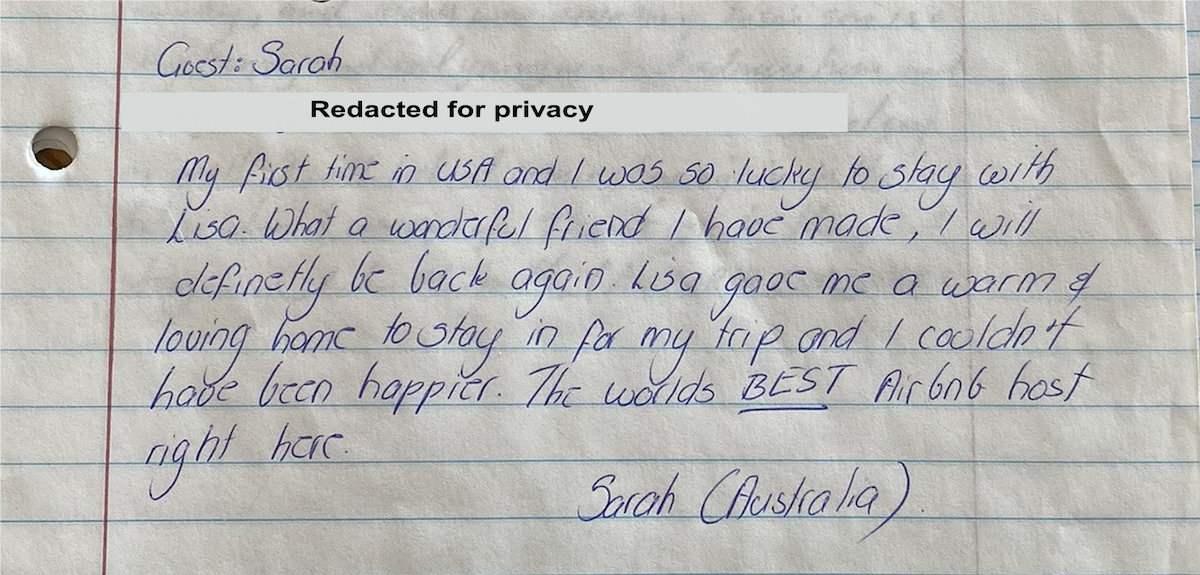 Guest: Sarah
Redacted for privacy
My first time in USA and I was so lucky to stay with
Lisa. What a wonderful friend I have made, I will
definetly be back again. Lisa gave me a warm &
loving home to stay in for my trip and I couldn't
have been happier. The worlds BEST Airbnb host
right here.
Sarah (Australia).